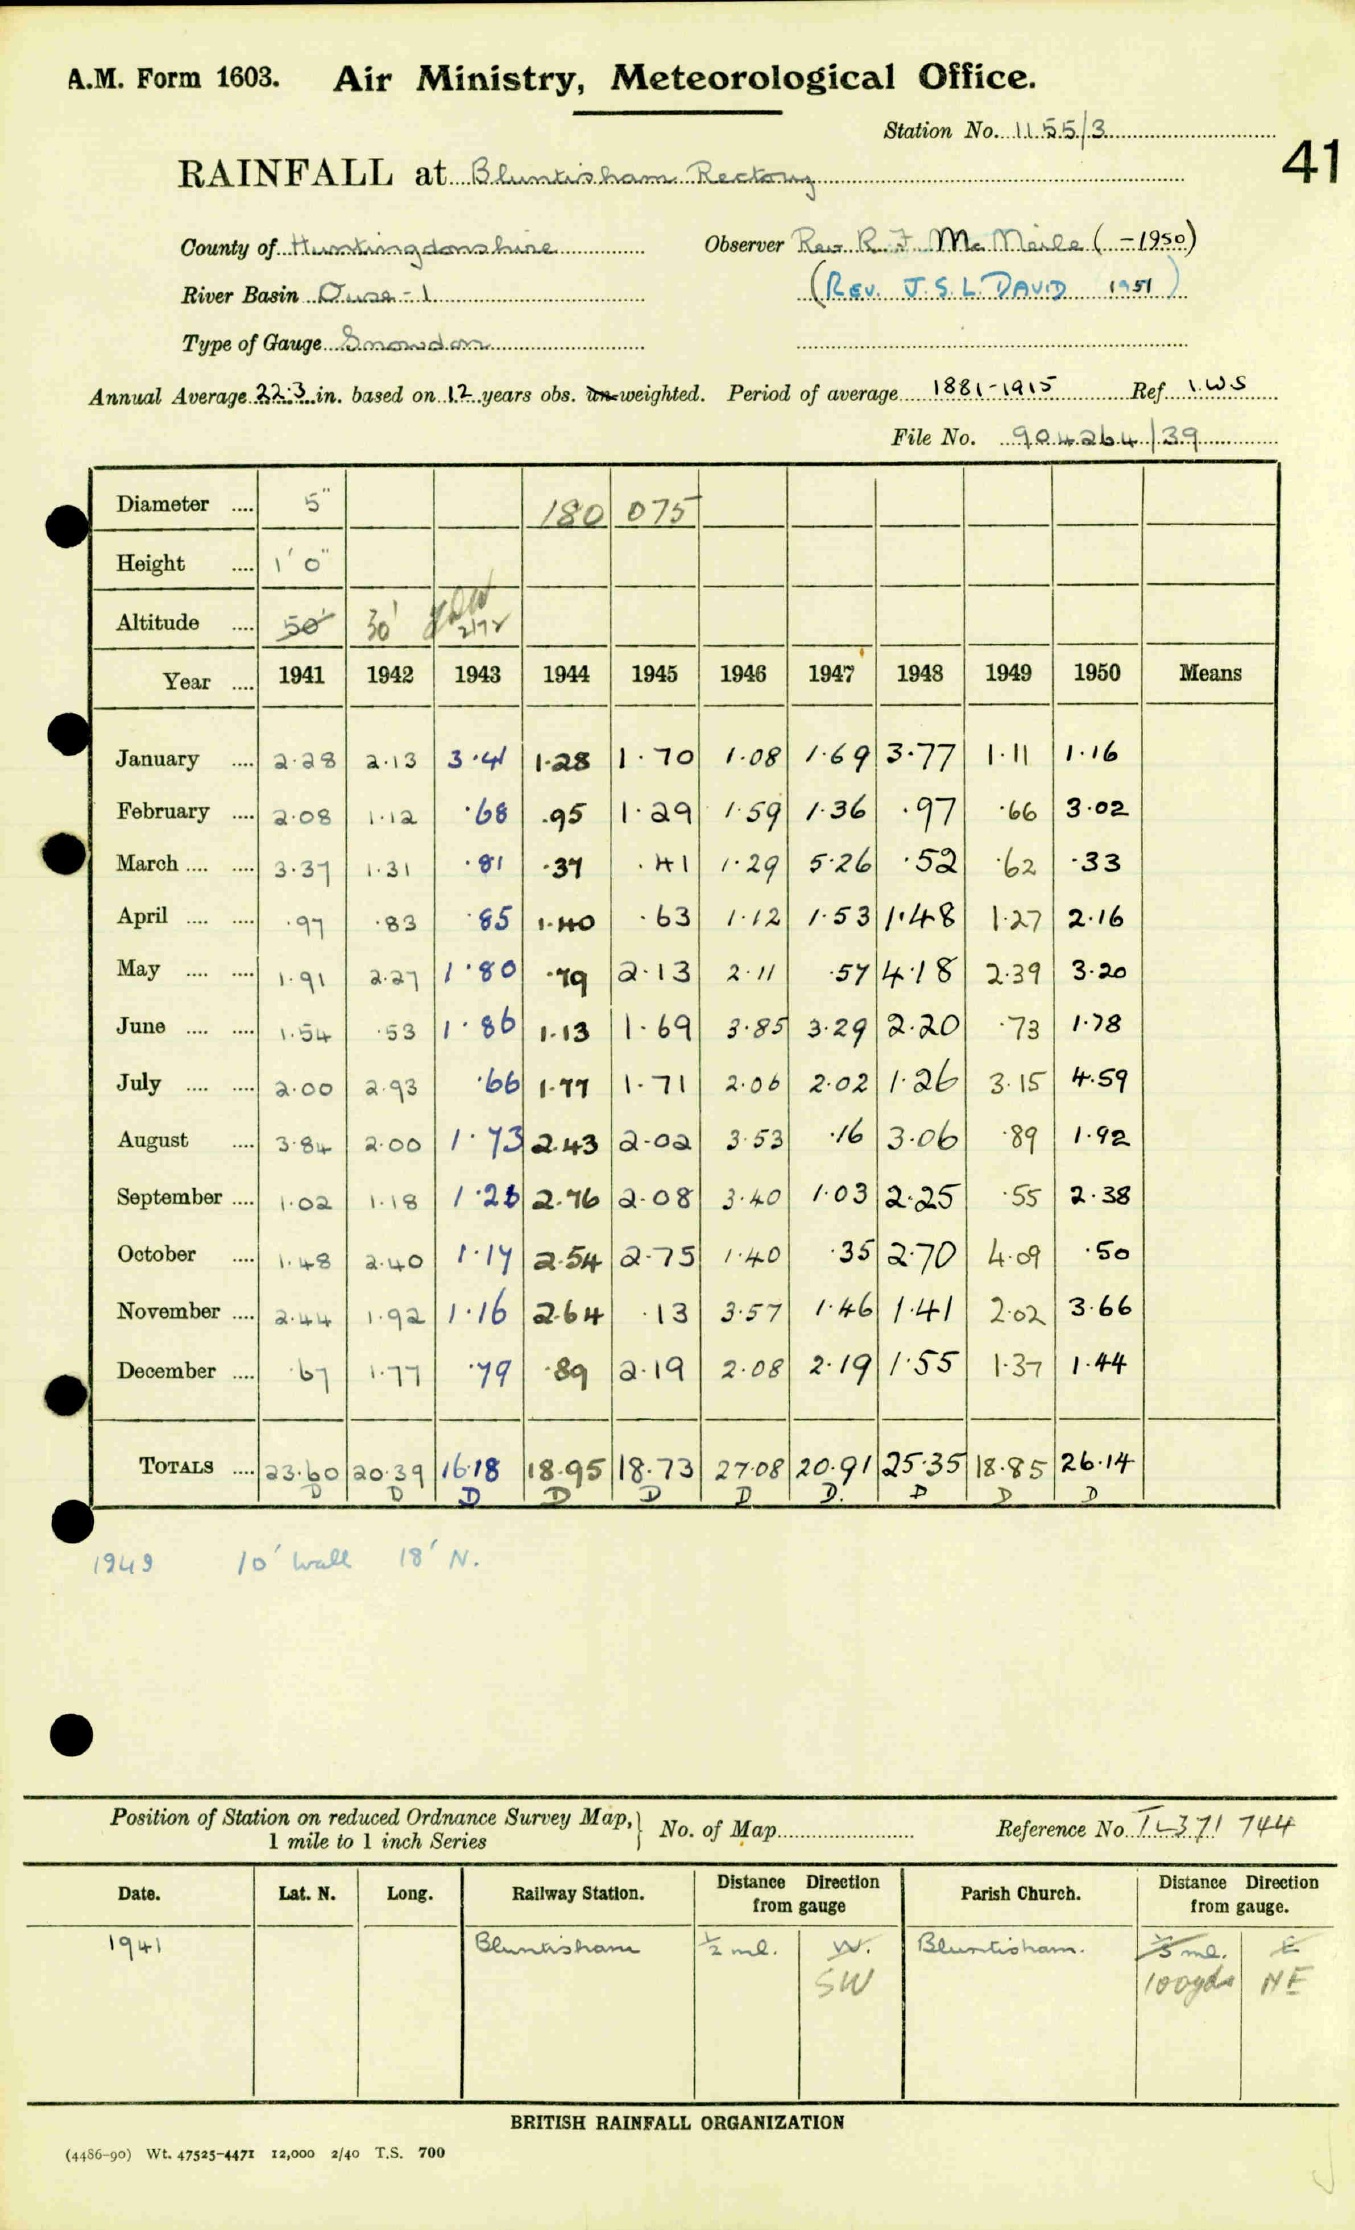 A.M. Form 1603. Air Ministry, Meteorological Office.
Station No. 1155/3
41
RAINFALL at Bluntisham Rectory
County of Huntingdonshire Observer Rev. R. F. McNeile ( -1950)
River Basin Ouse-1 (REV. J.S.L. DAVID 1951)
Type of Gauge Snowdon
Annual Average 22.3 in. based on 12 years obs. un-weighted. Period of average 1881-1915 Ref 1.W5
File No. 904264/39
Diameter .... 5" 180 075
Height .... 1' 0"
Altitude .... 50' 30' 2/72
Year .... 1941 1942 1943 1944 1945 1946 1947 1948 1949 1950 Means
January .... 2.28 2.13 3.41 1.28 1.70 1.08 1.69 3.77 1.11 1.16
February .... 2.08 1.12 .68 .95 1.29 1.59 1.36 .97 .66 3.02
March .... .... 3.37 1.31 .81 .37 .41 1.29 5.26 .52 .62 .33
April .... .... .97 .83 .85 1.40 .63 1.12 1.53 1.48 1.27 2.16
May .... .... 1.91 2.27 1.80 .79 2.13 2.11 .57 4.18 2.39 3.20
June .... .... 1.54 .53 1.86 1.13 1.69 3.85 3.29 2.20 .73 1.78
July .... .... 2.00 2.93 .66 1.77 1.71 2.06 2.02 1.26 3.15 4.59
August .... 3.84 2.00 1.73 2.43 2.02 3.53 .16 3.06 .89 1.92
September .... 1.02 1.18 1.26 2.76 2.08 3.40 1.03 2.25 .55 2.38
October .... 1.48 2.40 1.17 2.54 2.75 1.40 .35 2.70 4.09 .50
November .... 2.44 1.92 1.16 2.64 .13 3.57 1.46 1.41 2.02 3.66
December .... .67 1.77 .79 .89 2.19 2.08 2.19 1.55 1.37 1.44
TOTALS .... 23.60 20.39 16.18 18.95 18.73 27.08 20.91 25.35 18.85 26.14
D D D D D D D. D D D
1949 10' wall 18' N.
Position of Station on reduced Ordnance Survey Map,
1 mile to 1 inch Series } No. of Map Reference No TL371 744
Date. Lat. N. Long. Railway Station. Distance Direction from gauge Parish Church. Distance Direction from gauge.
1941 Bluntisham ½ ml. W. Bluntisham. ⅓ ml. E
SW 100yds NE
BRITISH RAINFALL ORGANIZATION
(4486-90) Wt. 47525-4471 12,000 2/40 T.S. 700